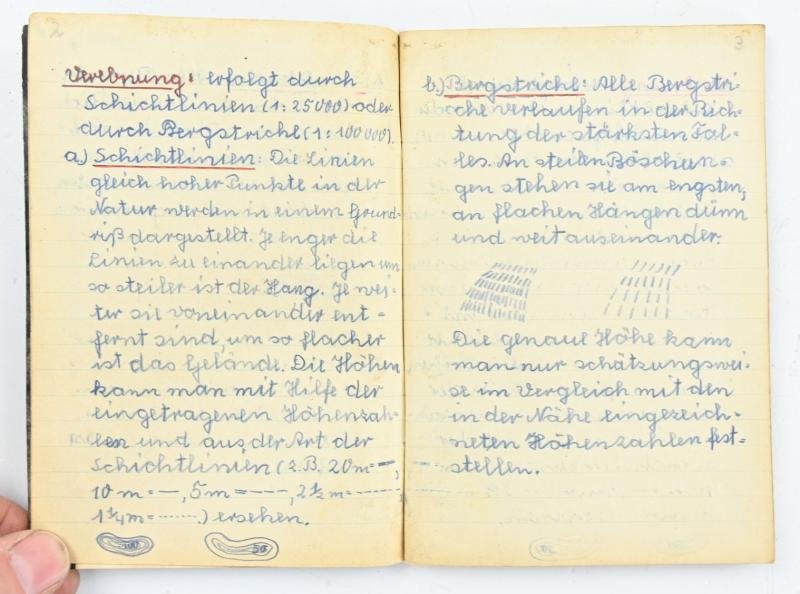 2
Verebnung: erfolgt durch
Schichtlinien (1:25000) oder
durch Bergstriche (1:100000).
a.) Schichtlinien: Die Linien
gleich hoher Punkte in der
Natur werden in einem Grund=
riß dargestellt. Je enger die
Linien zu einander liegen um
so steiler ist der Hang. Je wei=
ter sie voneinander ent=
fernt sind, um so flacher
ist das Gelände. Die Höhen
kann man mit Hilfe der
eingetragenen Höhenzah=
len und aus der Art der
Schichtlinien (z.B. 20m=—,
10m=—, 5m=----, 2½m=------
1¼m=.......) ersehen.
100 50
3
b.) Bergstriche: Alle Bergstri=
che verlaufen in der Rich=
tung der stärksten Fal=
les. An steilen Böschun=
gen stehen sie am engsten,
an flachen Hängen dünn
und weit auseinander.
Die genaue Höhe kann
man nur schätzungswei=
se im Vergleich mit den
in der Nähe eingezeich=
neten Höhenzahlen fest=
stellen.